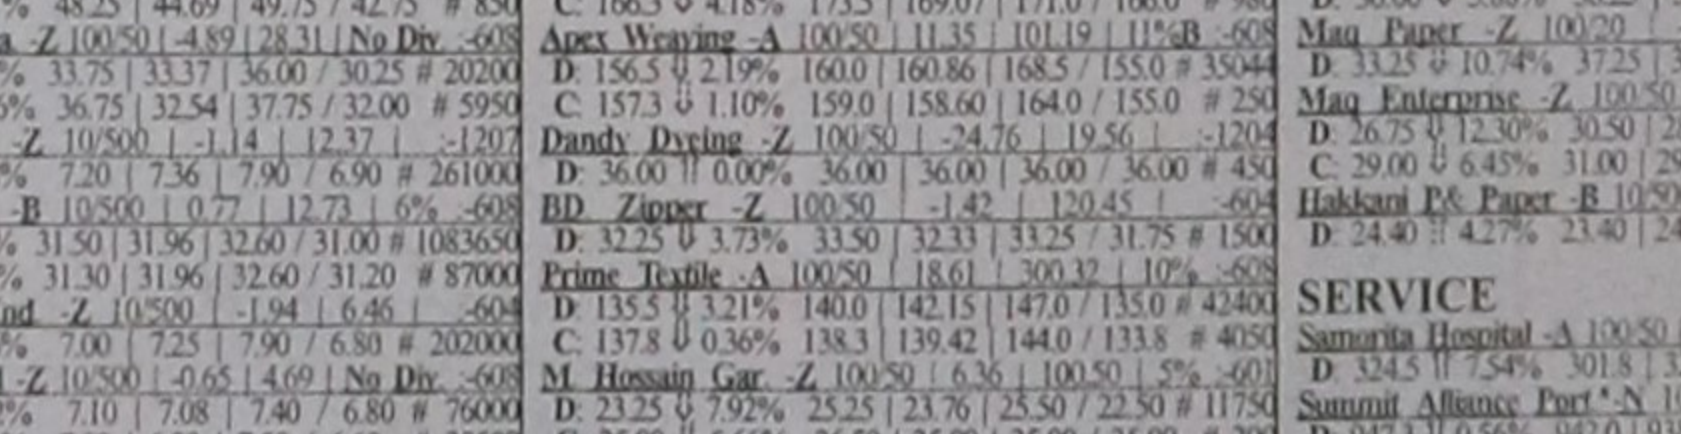 % 48.25 | 44.69 | 49.75 / 42.75 # 850
a -Z 100/50 | -4.89 | 28.31 | No Div :-608
% 33.75 | 33.37 | 36.00 / 30.25 # 20200
% 36.75 | 32.54 | 37.75 / 32.00 # 5950
-Z 10/500 | -1.14 | 12.37 | :-1207
% 7.20 | 7.36 | 7.90 / 6.90 # 261000
-B 10/500 | 0.77 | 12.73 | 6% :-608
% 31.50 | 31.96 | 32.60 / 31.00 # 1083650
% 31.30 | 31.96 | 32.60 / 31.20 # 87000
nd -Z 10/500 | -1.94 | 6.46 | :-604
% 7.00 | 7.25 | 7.90 / 6.80 # 202000
-Z 10/500 | -0.65 | 4.69 | No Div :-608
% 7.10 | 7.08 | 7.40 / 6.80 # 76000
C: 166.3 ⇩ 4.18% 173.5 | 169.07 | 171.0 /
Apex Weaving -A 100/50 | 11.35 | 101.19 | 11%B :-608
D: 156.5 ⇩ 2.19% 160.0 | 160.86 | 168.5 / 155.0 # 35044
C: 157.3 ⇩ 1.10% 159.0 | 158.60 | 164.0 / 155.0 # 250
Dandy Dyeing -Z 100/50 | -24.76 | 19.56 | :-1204
D: 36.00 || 0.00% 36.00 | 36.00 | 36.00 / 36.00 # 450
BD Zipper -Z 100/50 | -1.42 | 120.45 | :-604
D: 32.25 ⇩ 3.73% 33.50 | 32.33 | 33.25 / 31.75 # 1500
Prime Textile -A 100/50 | 18.61 | 300.32 | 10% :-608
D: 135.5 ⇩ 3.21% 140.0 | 142.15 | 147.0 / 135.0 # 42400
C: 137.8 ⇩ 0.36% 138.3 | 139.42 | 144.0 / 133.8 # 4050
M Hossain Gar -Z 100/50 | 6.36 | 100.50 | 5% :-601
D: 23.25 ⇩ 7.92% 25.25 | 23.76 | 25.50 / 22.50 # 11750
Maq Paper -Z 100/20 |
D: 33.25 ⇩ 10.74% 37.25 | 3
Maq Enterprise -Z 100/50
D: 26.75 ⇩ 12.30% 30.50 | 2
C: 29.00 ⇩ 6.45% 31.00 | 29
Hakkani P& Paper -B 10/50
D: 24.40 4.27% 23.40 | 24
SERVICE
Samorita Hospital -A 100/50
D: 324.5 7.54% 301.8 | 3
Summit Alliance Port*-N 1